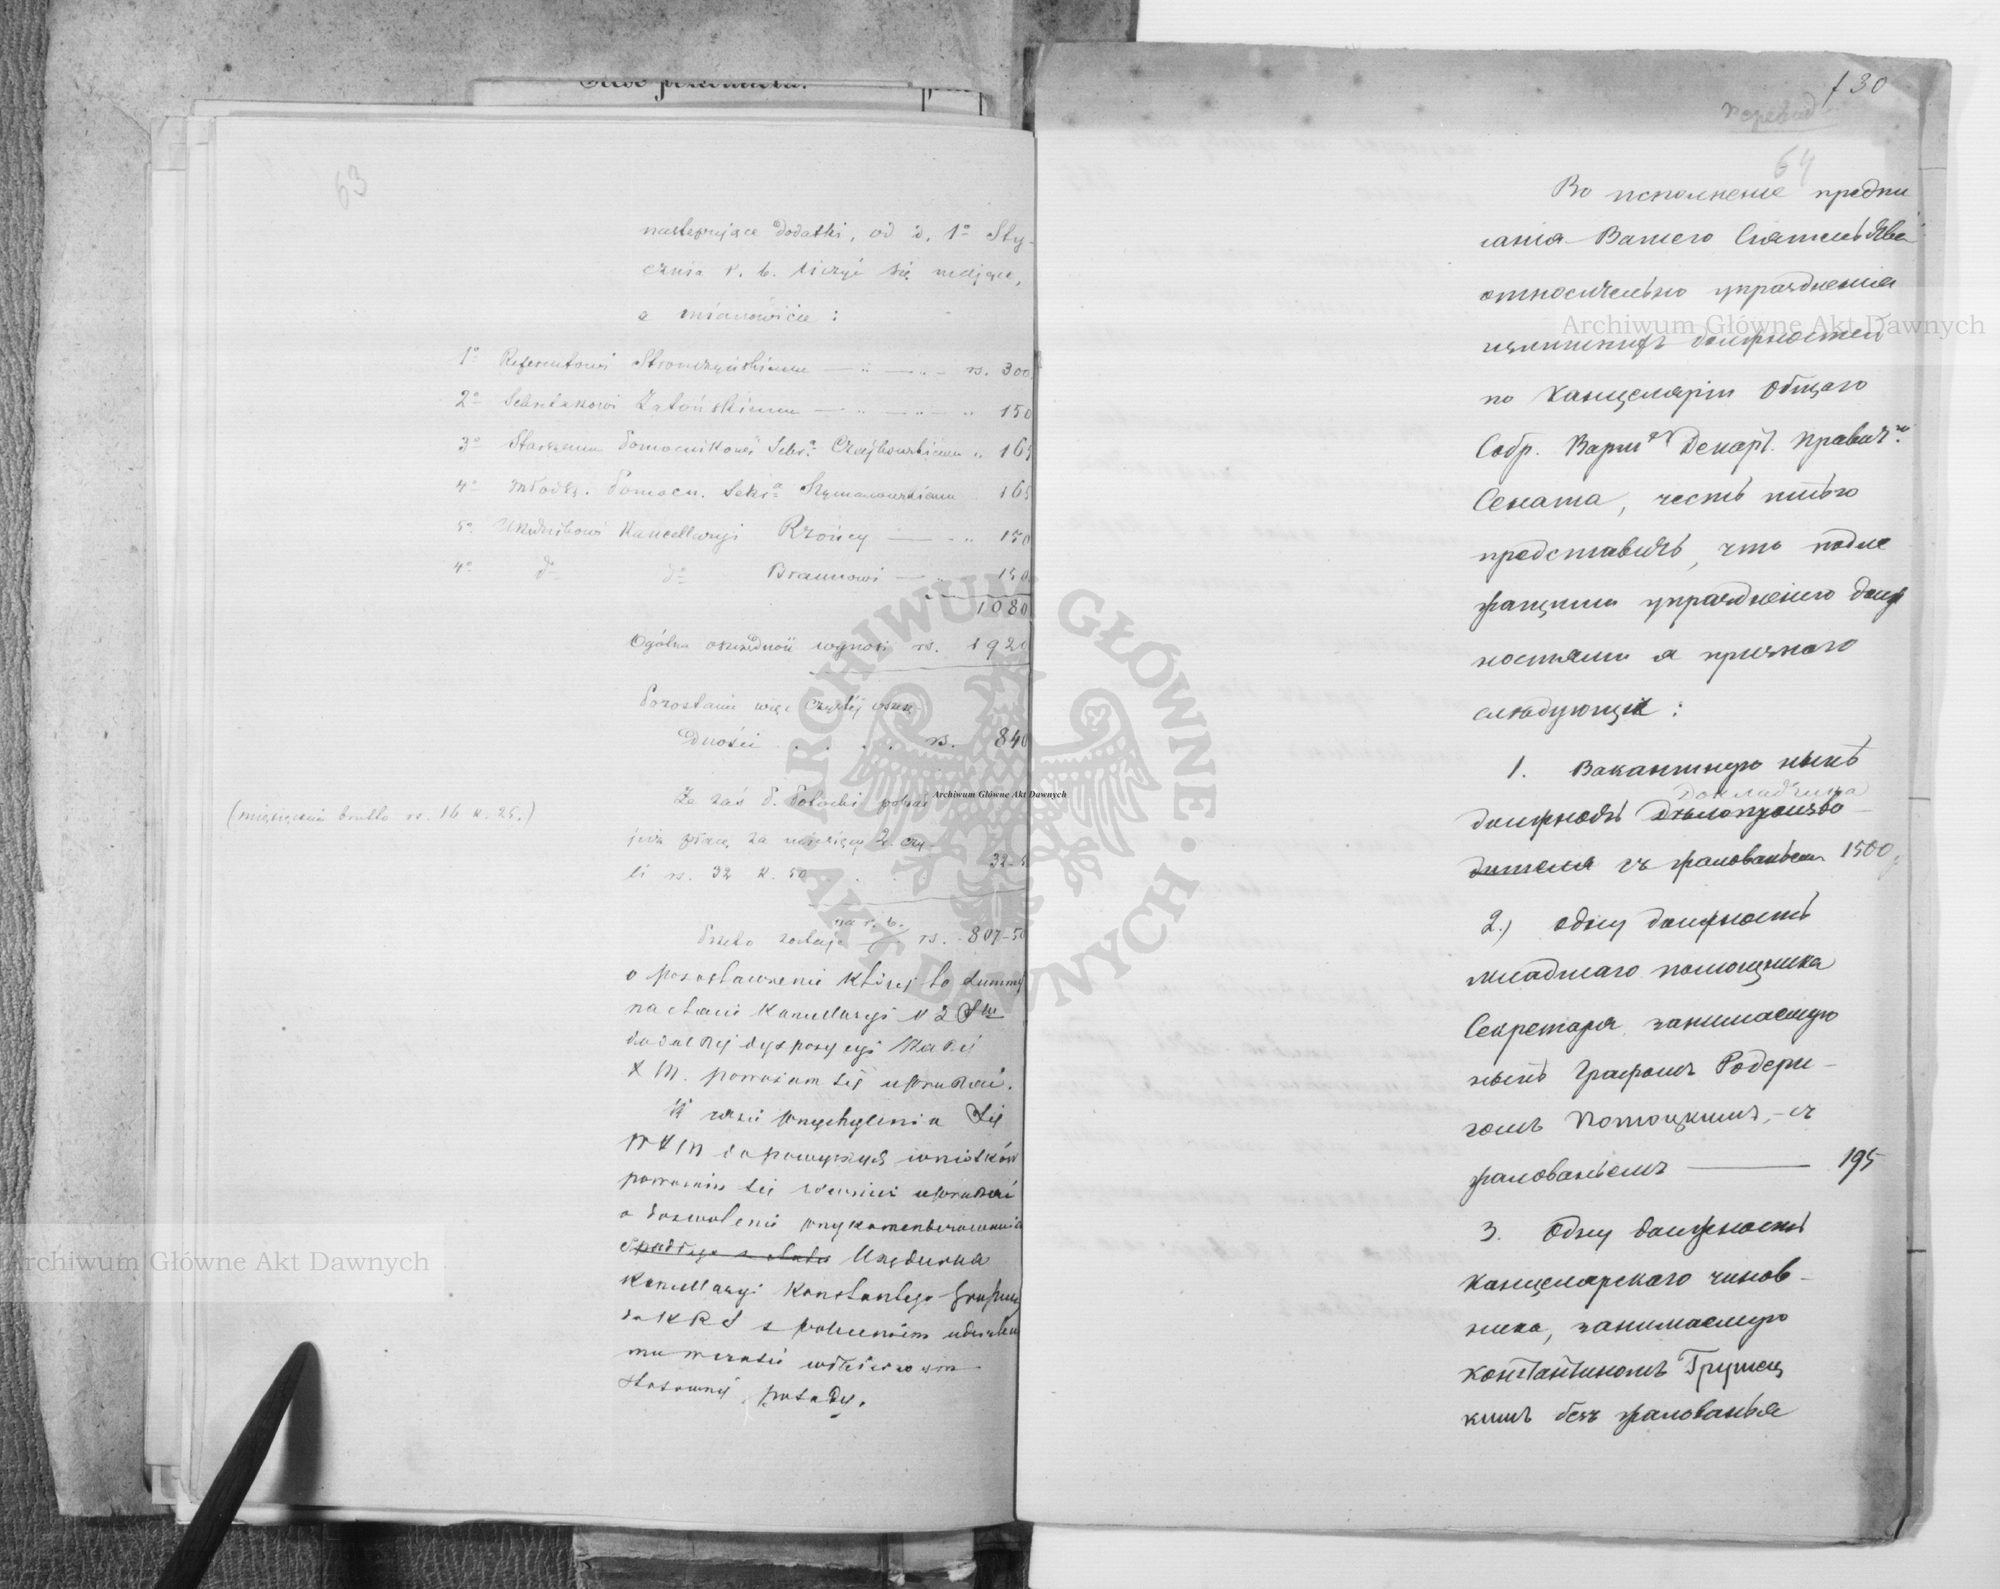 63
następujące dodatki, od d. 1º Sty-
cznia r. b. liczyć się mające,
a mianowicie :
1º Referentowi Stronczyńskiemu — " — " — rs. 300
2º Sekretarzowi Zatońskiemu — " — " — " 150
3º Starszemu Pomocnikowi Sekr.ª Czajkowskiemu " 165
4º Młodsz. Pomocn. Sekr.ª Szymanowskiemu 165
5º Urzędnikowi Kancellaryi Rzońcy — " 150
4º dº dº Braunowi — " 150
1080
Ogólna oszczędność wynosi rs. 1920
Pozostanie więc czystej oszczę-
dności . . . . rs. 840
Że zaś P. Potocki pobrał
(miesięcznie brutto rs. 16 k. 25.)
już płacę za miesięcy 2. czy-
li rs. 32 k. 50 . . 32-5
na r. b.
Przeto zostaje rs. 807-50
o pozostawienie której to summy
na etacie Kancellaryi
do dalszej dyspozycyi
X M. poważam się upraszać.
W razie przychylenia się
do powyższych wniosków
poważam się również upraszać
o dozwolenie
Urzędnika
Kancellaryi Konstantego
do KRS z poleceniem udzielenia
mu w czasie właściwym
stosownej posady.
130
перевод
64
Во исполнение предпи
сания Вашего Сіятельства
относительно упраздненія
излишнихъ должностей
по Канцеляріи Общаго
Собр. Варш. Департ. Правит.
Сената, честь имѣю
представить, что подле
жащими упраздненію долж
ностями я признаю
слѣдующія :
1. Вакантную нынѣ
Докладчика
должность Дѣлопроизво-
дителя съ жалованьемъ 1500
2.) одну должность
младшаго помощника
Секретаря занимаемую
нынѣ Графомъ Родери-
гомъ Потоцкимъ, – съ
жалованьемъ — 195
3. Одну должность
канцелярскаго чинов-
ника, занимаемую
Константиномъ Грушец
кимъ безъ жалованья
Archiwum Główne Akt Dawnych
Archiwum Główne Akt Dawnych
Archiwum Główne Akt Dawnych
ARCHIWUM GŁÓWNE AKT DAWNYCH